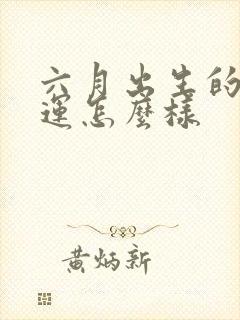 六月出生的
運怎麼樣
黃炳新